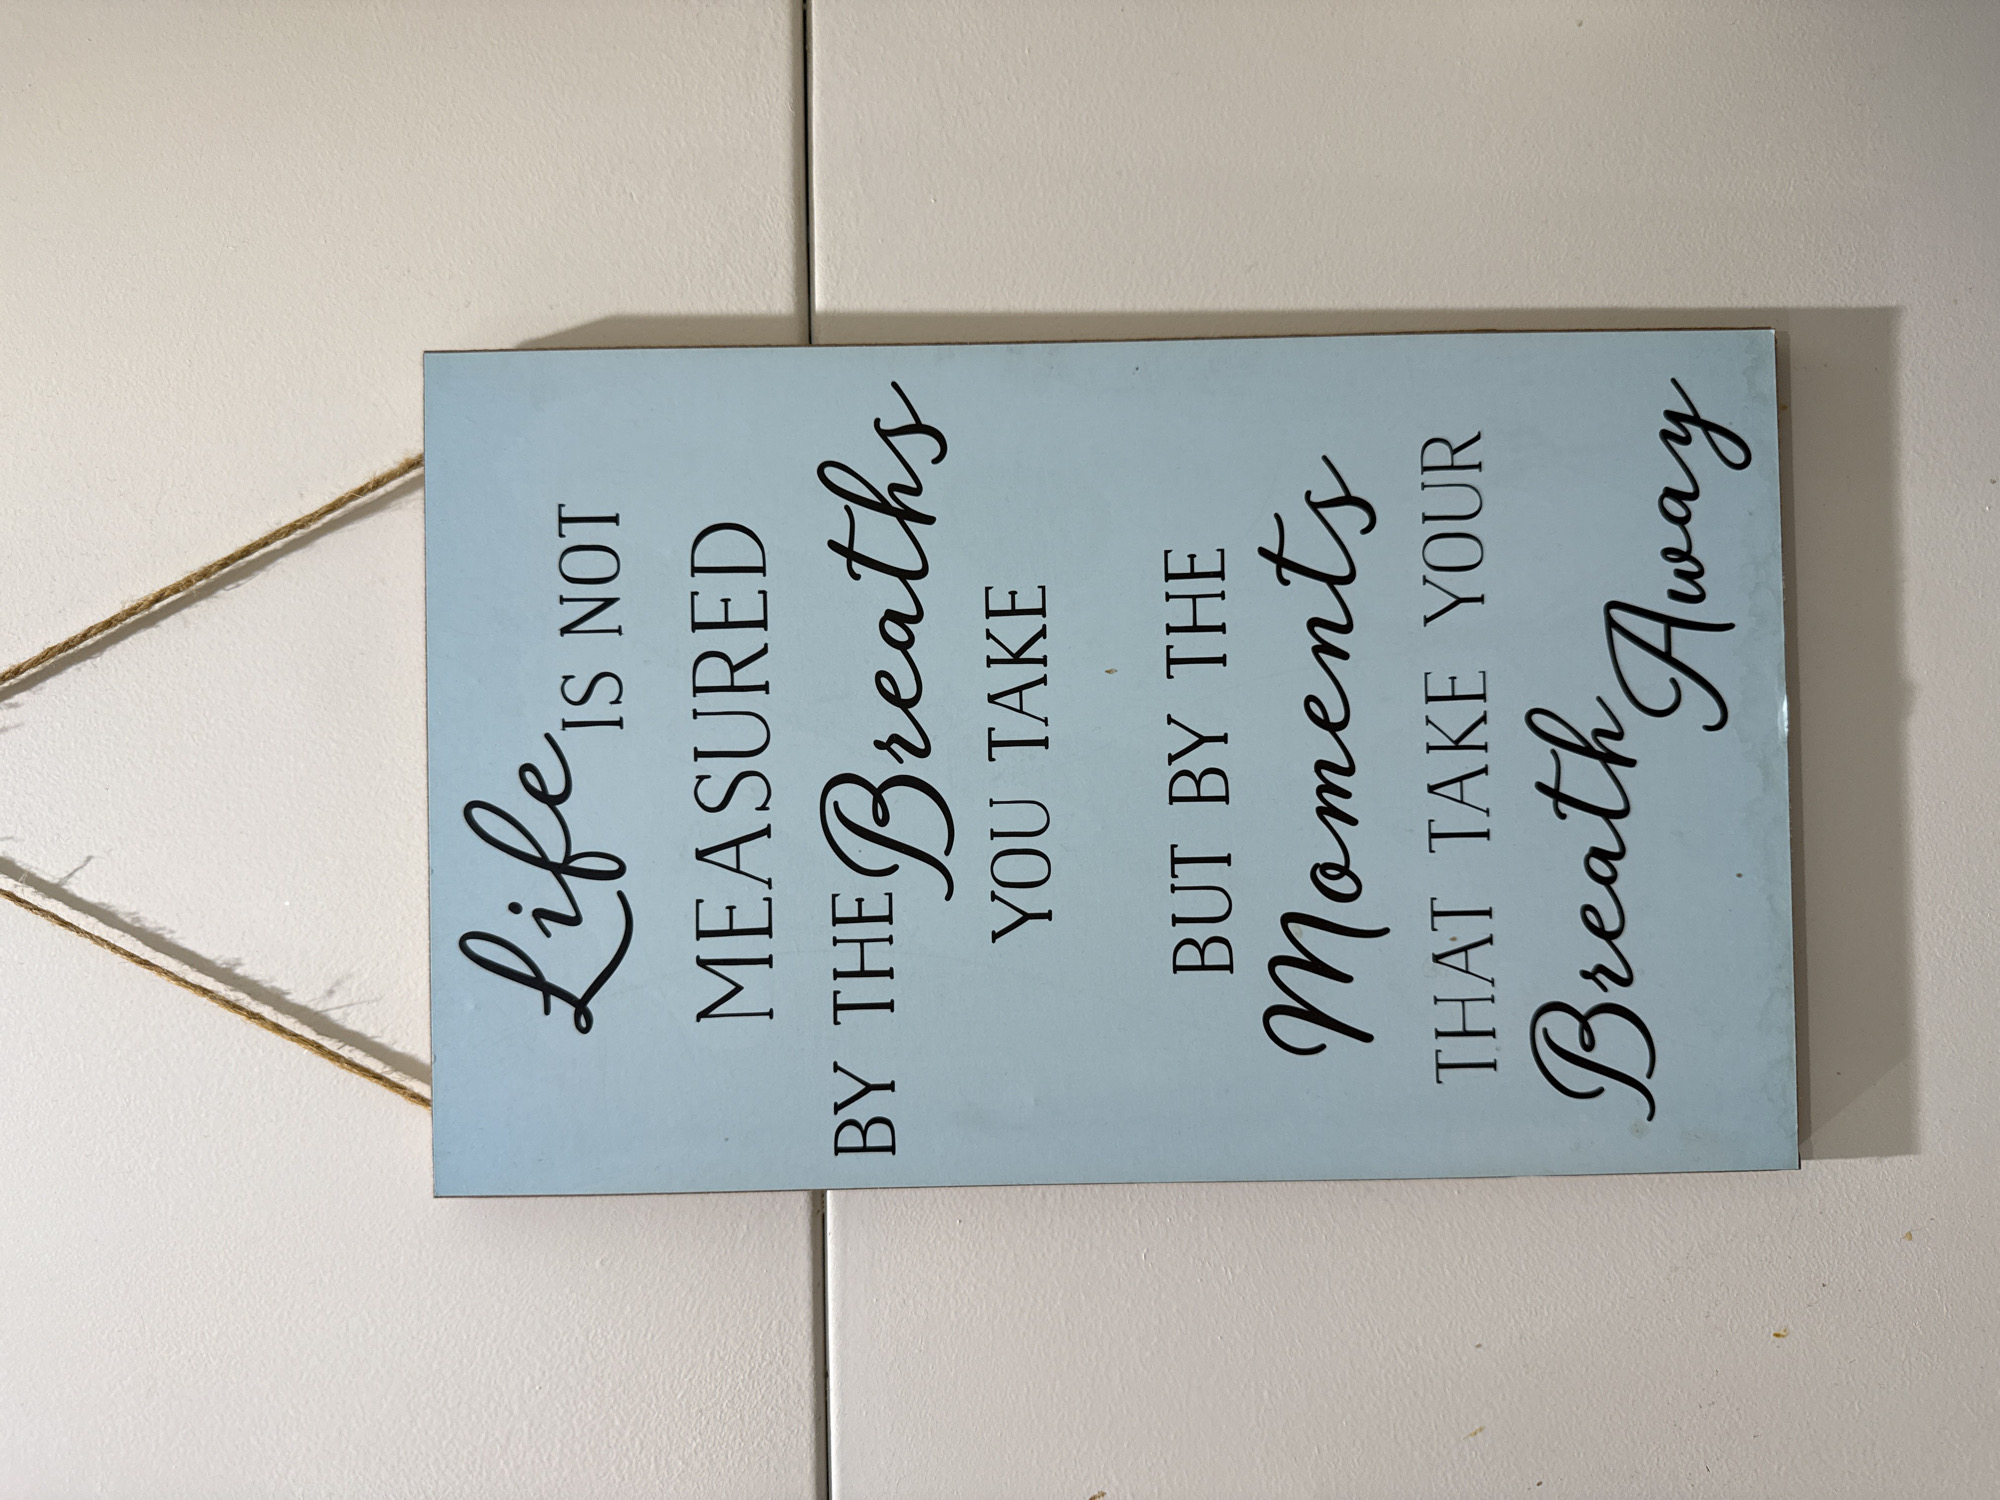 Life IS NOT
MEASURED
BY THE Breaths
YOU TAKE
BUT BY THE
Moments
THAT TAKE YOUR
Breath
Away